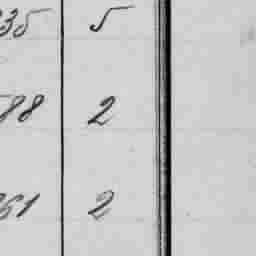 35 5
88 2
61 2